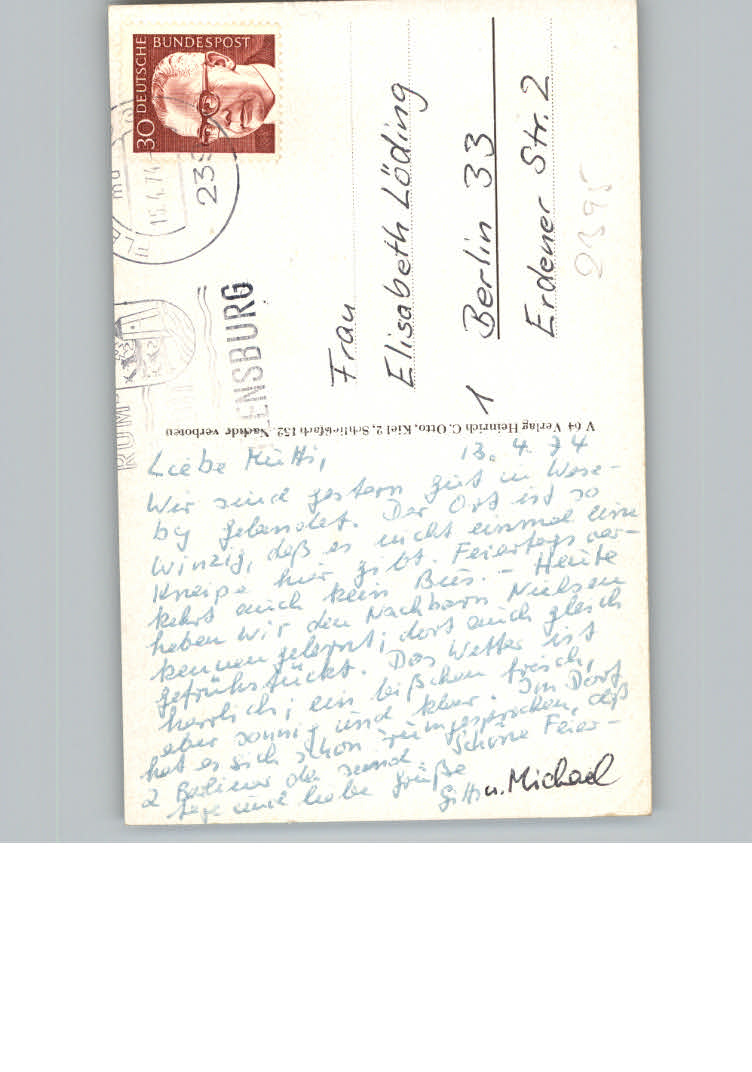 Liebe Mutti,
13.4.74
Wir sind gestern gut in Wese-
by gelandet. Der Ort ist so
winzig, daß es nicht einmal eine
Kneipe hier gibt. Feiertags ver-
kehrt auch kein Bus. – Heute
haben wir den Nachbarn Nielsen
kennen gelernt; dort auch gleich
gefrühstückt. Das Wetter ist
herrlich; ein bißchen frisch,
aber sonnig und klar. Im Dorf
hat es sich schon rumgesprochen, daß
2 Berliner da sind. Schöne Feier-
tage und liebe Grüße
Gitti u. Michael
V 64 Verlag Heinrich C. Otto, Kiel 2, Schließfach 152. Nachdr. verboten
DEUTSCHE BUNDESPOST
30
15.4.74
239
RUM
FLENSBURG
Frau
Elisabeth Löding
1 Berlin 33
Erdener Str. 2
2395